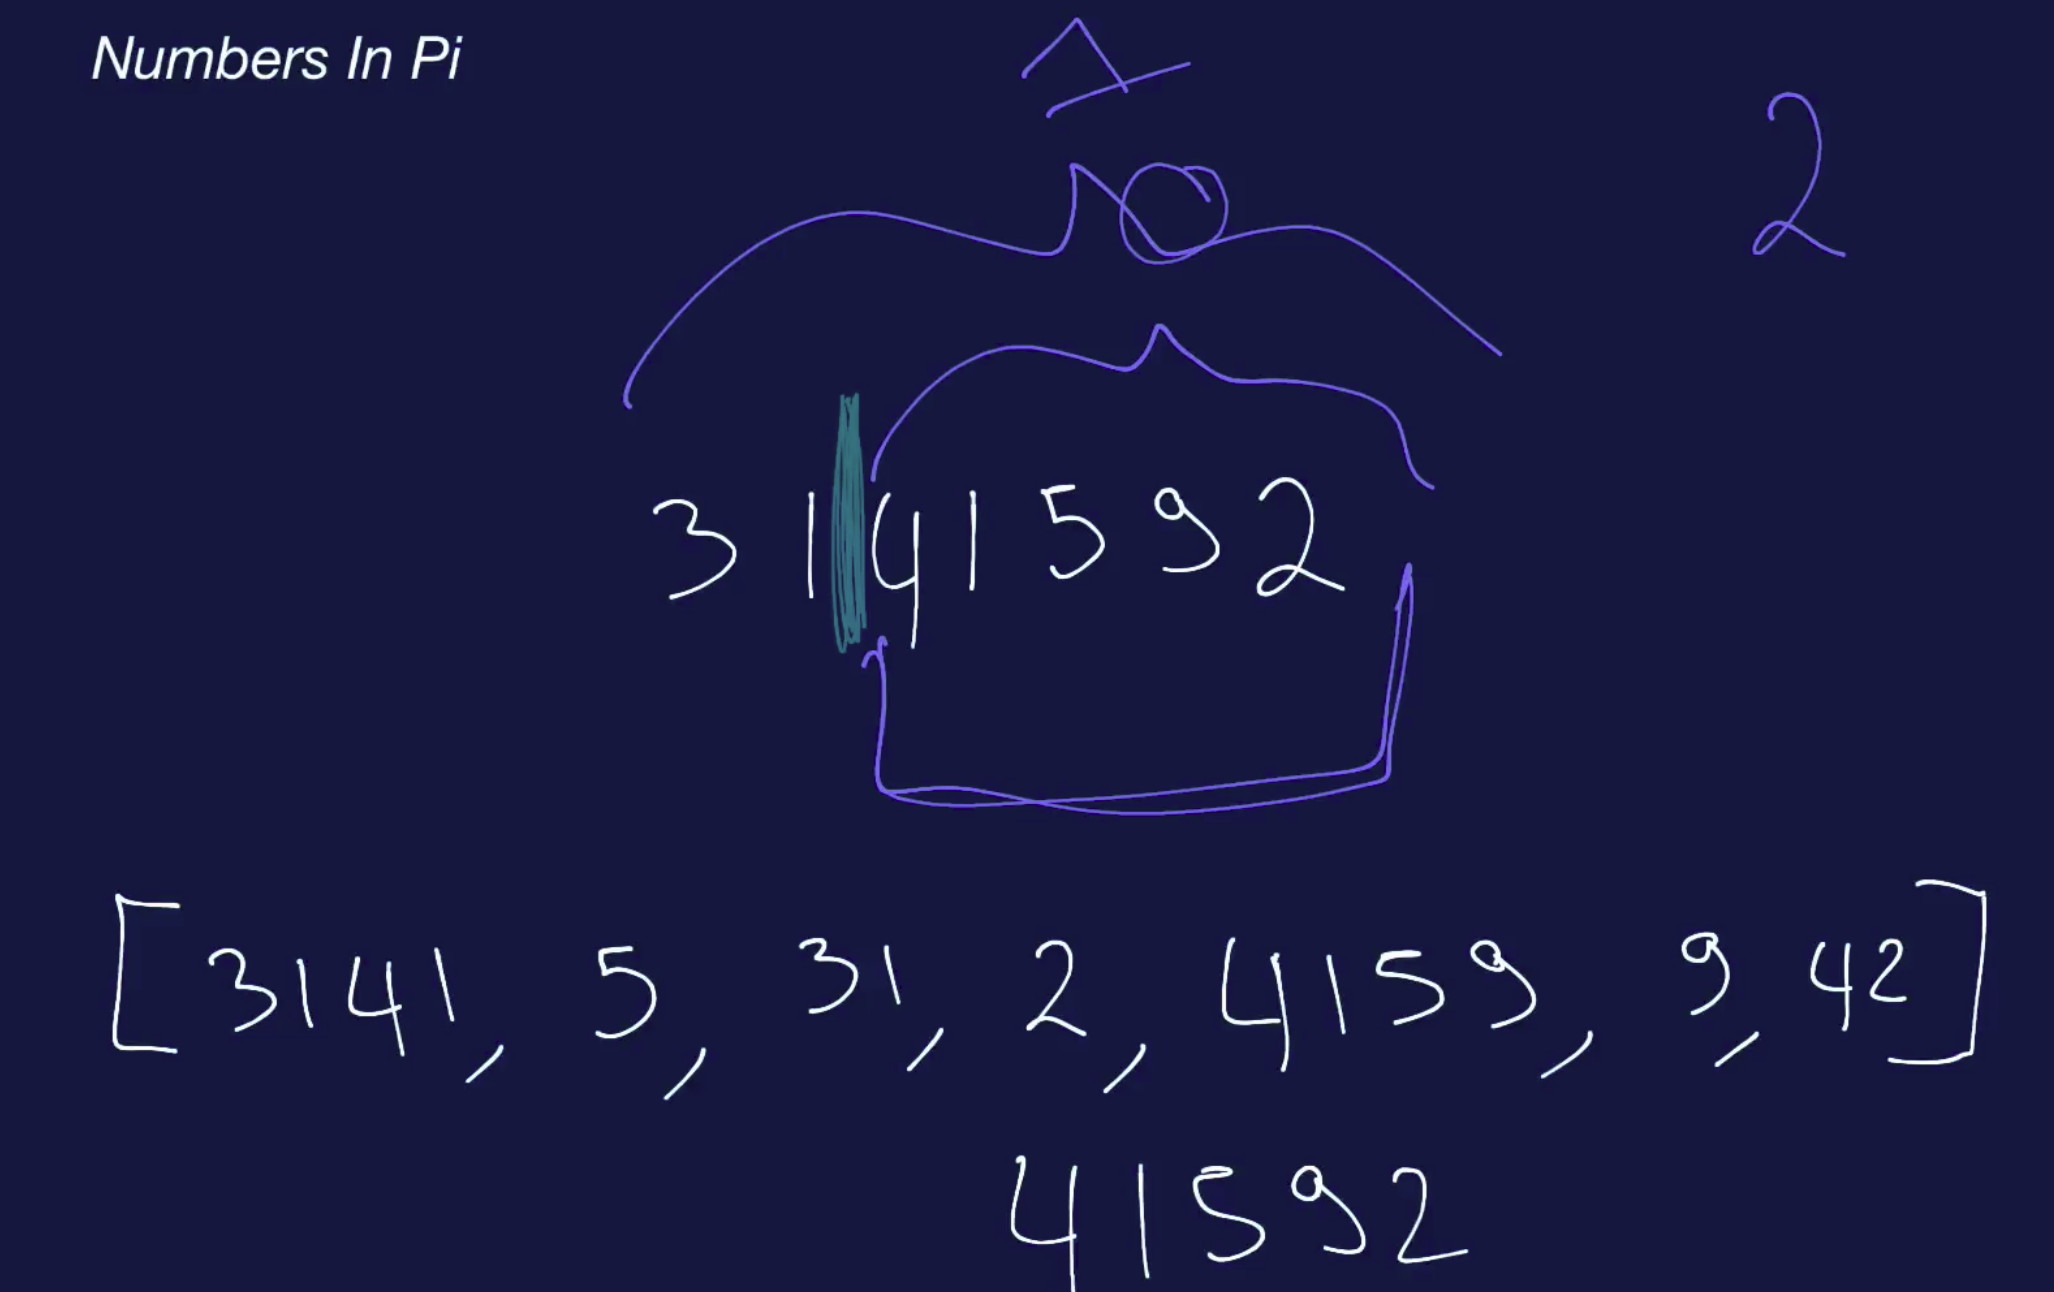 Numbers In Pi
1
2
3141592
[3141, 5, 31, 2, 4159, 9, 42]
41592